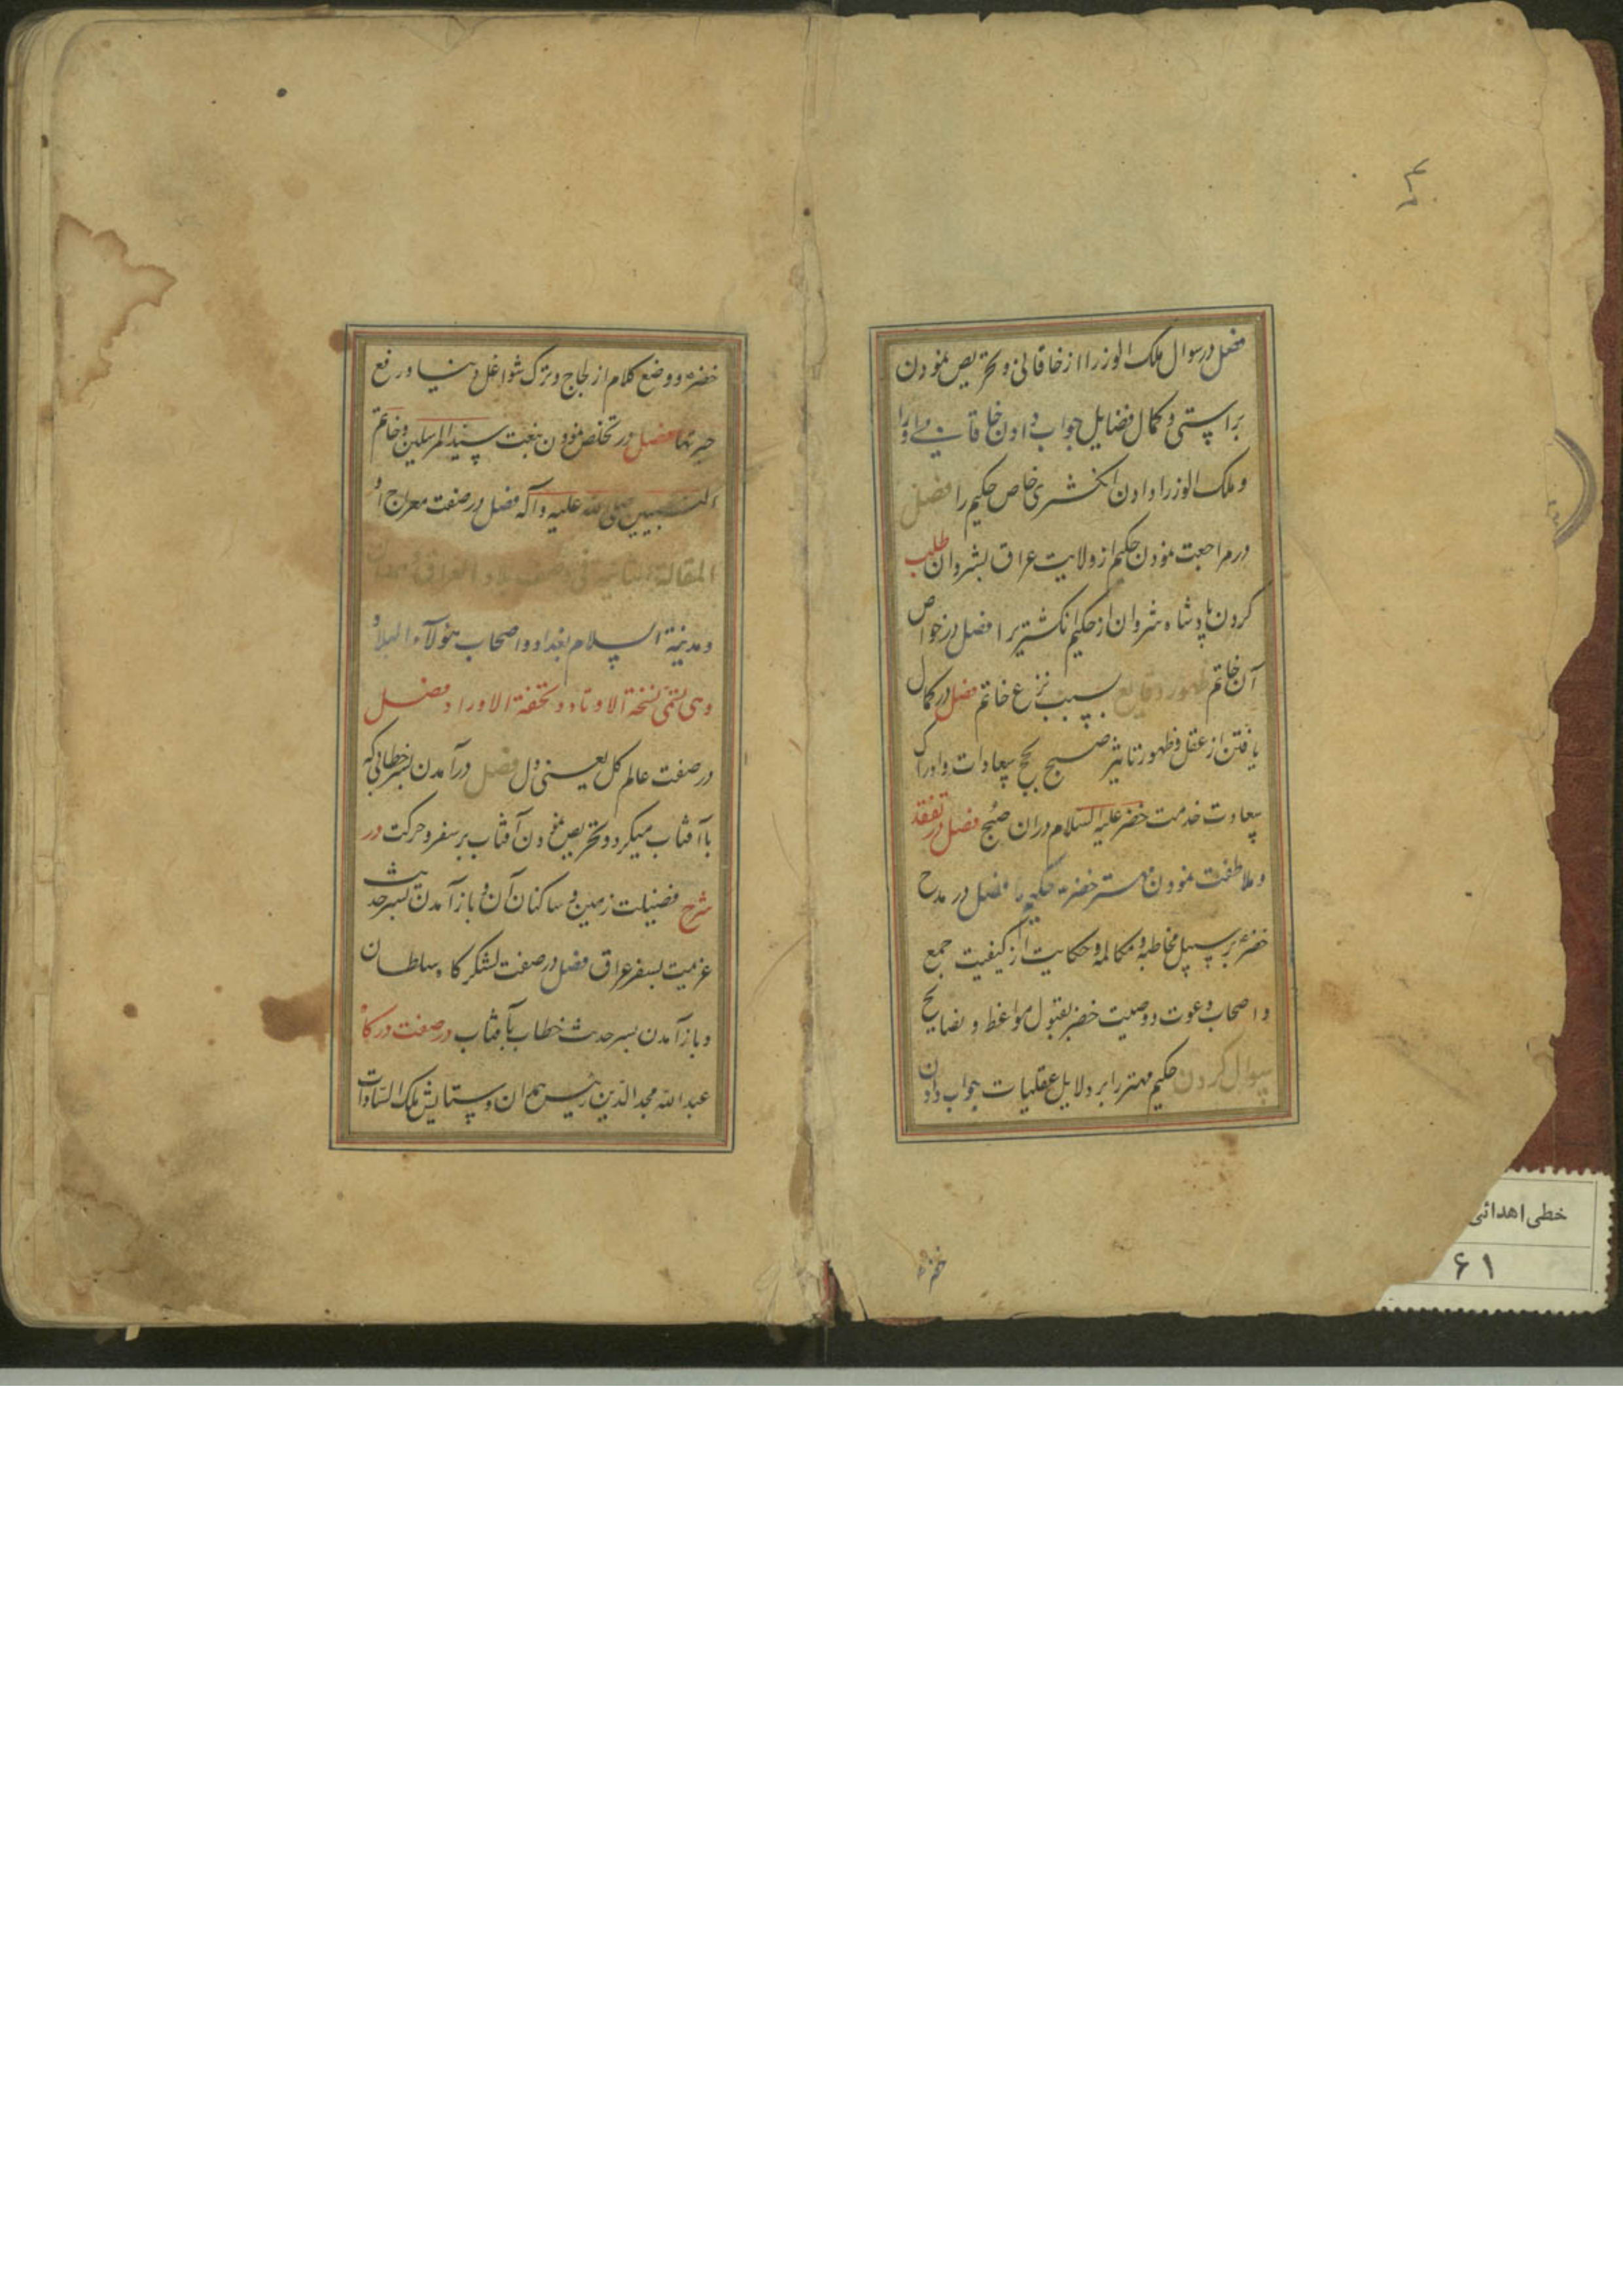 فصل در سوال ملک الوزرا از خاقانی و تحریص نمودن
براستی و کمال فضایل جواب دادن خاقانی وی را
و ملک الوزرا دادن انگشتری خاص حکیم را فصل
در مراجعت نمودن حکیم از ولایت عراق بشروان طلب
کردن پادشاه شروان از حکیم انگشتری را فصل در خواص
آن خاتم ظهور وقایع بسبب نزع خاتم فصل در کمال
یافتن از عقل و ظهور تاثیر صبح سعادات و ادراک
سعادت خدمت خضر علیه السلام دران صبح فصل در تفقد
و ملاطفت نمودن مهتر خضر حکیم را فصل در مدح
خضر بر سبیل مخاطبه و مکالمه و حکایت از کیفیت جمع
و اصحاب دعوت و وصیت خضر بقبول مواعظ و نصایح
سوال کردن حکیم مهتر را بر دلایل عقلیات جواب دادن
خضر
خضر و وضع کلام از لجاج و ترک شواغل دنیا و رفع
فصل در تخلص نمودن بنعت سید المرسلین و خاتم
النبیین صلی الله علیه و آله فصل در صفت معراج او
المقالة الثانیه فی وصف بلاد العراق و همدان
و مدینة السلام بغداد و اصحاب هؤلاء البلاد
و هی تسمی نسخة الاوتاد و تحفة الاوراد فصل
در صفت عالم کل یعنی دل فصل در آمدن بسر خطابی که
با آفتاب میکرد و تحریص نمودن آفتاب بر سفر و حرکت در
شرح فضیلت زمین و ساکنان آن و باز آمدن بسر حدیث
عزمیت بسفر عراق فصل در صفت لشکر کاه سلطان
و باز آمدن بسر حدیث خطاب بآفتاب در صفت درکاه
عبد الله مجد الدین رئیس همدان و ستایش ملک السادات
خطی اهدائی
۶۱